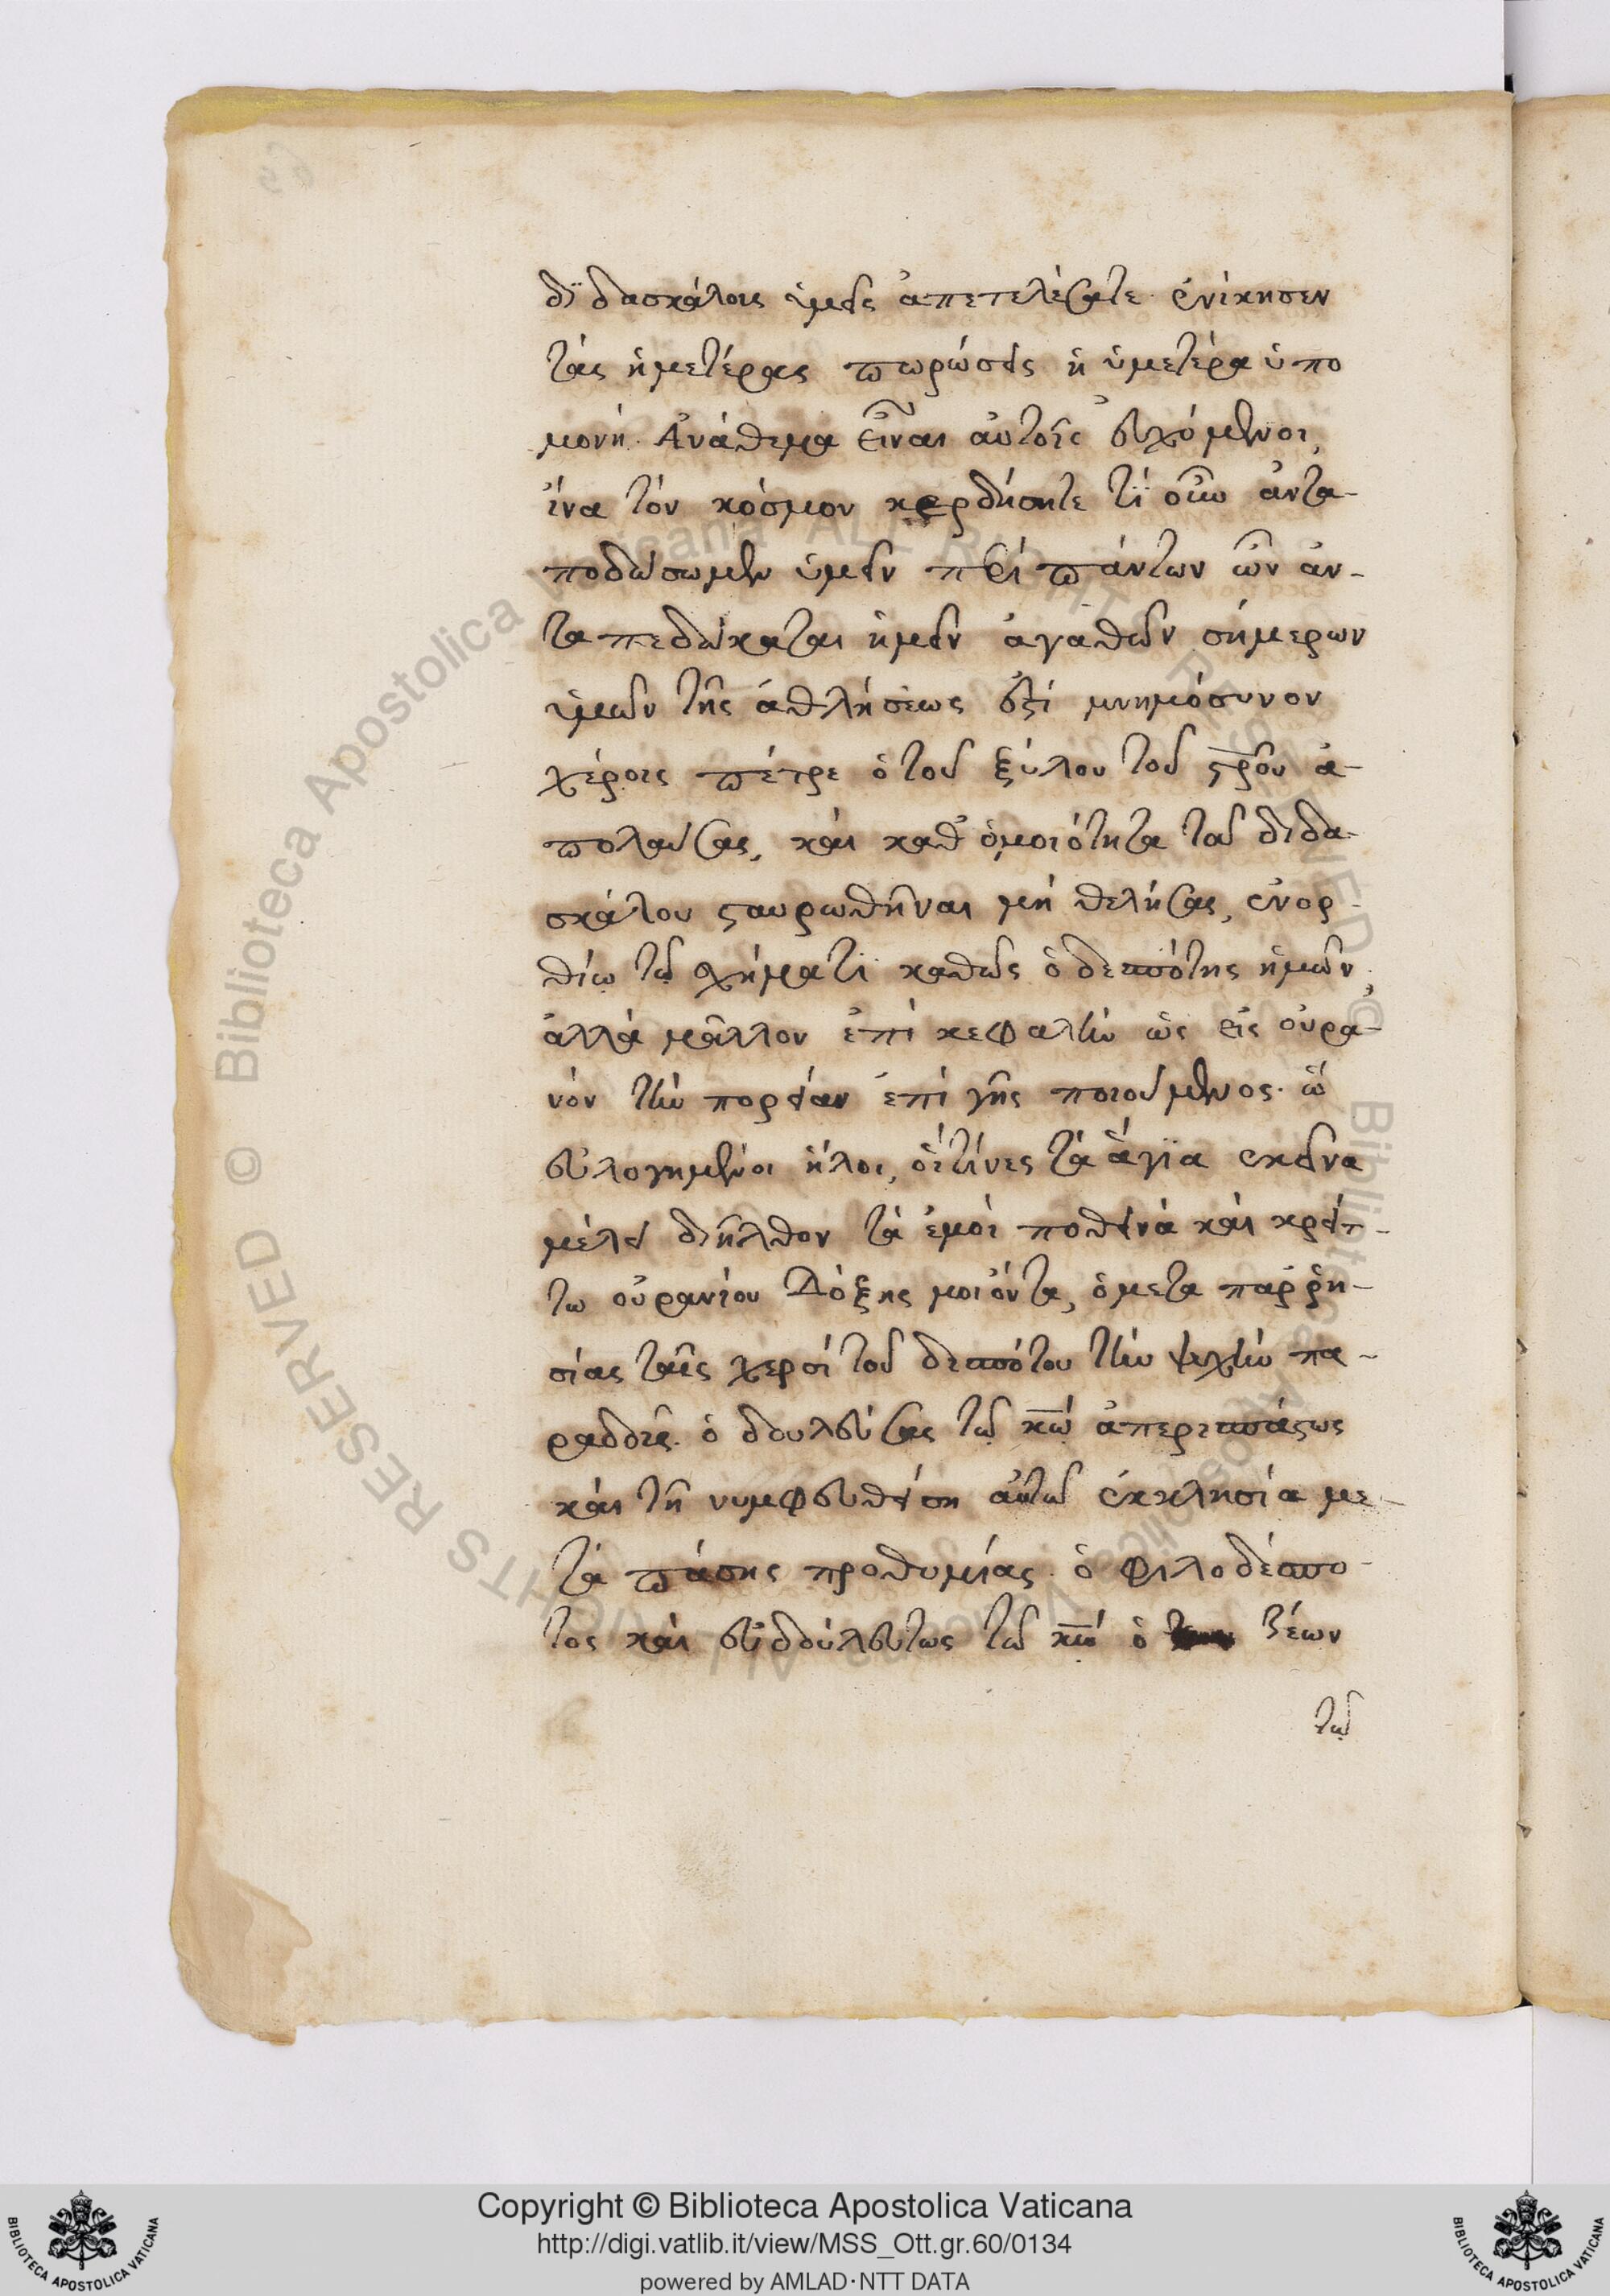 διδασκάλοις ἡμεῖς ἀπετελέσατε· ἐνίκησεν
τὰς ἡμετέρας πωρώσεις ἡ ὑμετέρα ὑπο
μονή· Ἀνάθεμα εἶναι αὐτοῖς εὐχόμενοι,
ἵνα τὸν κόσμον κερδήσητε τί οὖν ἀντα-
ποδώσωμεν ὑμεῖν περὶ πάντων ὧν ἀν-
ταπεδώκαται ἡμεῖν ἀγαθῶν σήμερων
ὑμῶν τῆς ἀθλήσεως ἐστί μνημόσυνον
χέροις πέτρε ὁ τοῦ ξύλου τοῦ σ̅ρ̅ο̅υ ἀ-
πολαύσας, καὶ καθ ὁμοιότητα τοῦ διδα-
σκάλου σταυρωθῆναι μὴ θελήσας, ἐν ὀρ-
θίω τῷ σχήματι καθὼς ὁ δεσπότης ἡμῶν,
ἀλλὰ μᾶλλον ἐπὶ κεφαλὴν ὡς εἰς οὐρα-
νὸν τὴν πορείαν ἐπὶ γῆς ποιούμενος· ὢ
εὐλογημένοι ἧλοι, οἵτινες τὰ ἅγια ἐκεῖνα
μέλει διῆλθον τὰ ἐμοὶ ποθεινὰ καὶ κρείτ-
τω οὐρανίου Δόξης μοι ὄντα, ὁ μετα παρρη-
σίας ταῖς χερσί τοῦ δεσπότου τὴν ψυχὴν πα-
ραδοὺς· ὁ δουλεύσας τῷ κ̅ω̅ ἀπερισπάστως
καὶ τῇ νυμφευθείση αὐτῶ ἐκκλησία με-
τὰ πάσης προθυμίας· ὁ φιλοδέσπο-
τος καὶ εὐδούλευτος τῶ κ̅ω̅ ὁ ζέων
τῷ
Copyright © Biblioteca Apostolica Vaticana
http://digi.vatlib.it/view/MSS_Ott.gr.60/0134
powered by AMLAD·NTT DATA
BIBLIOTECA APOSTOLICA VATICANA
BIBLIOTECA APOSTOLICA VATICANA